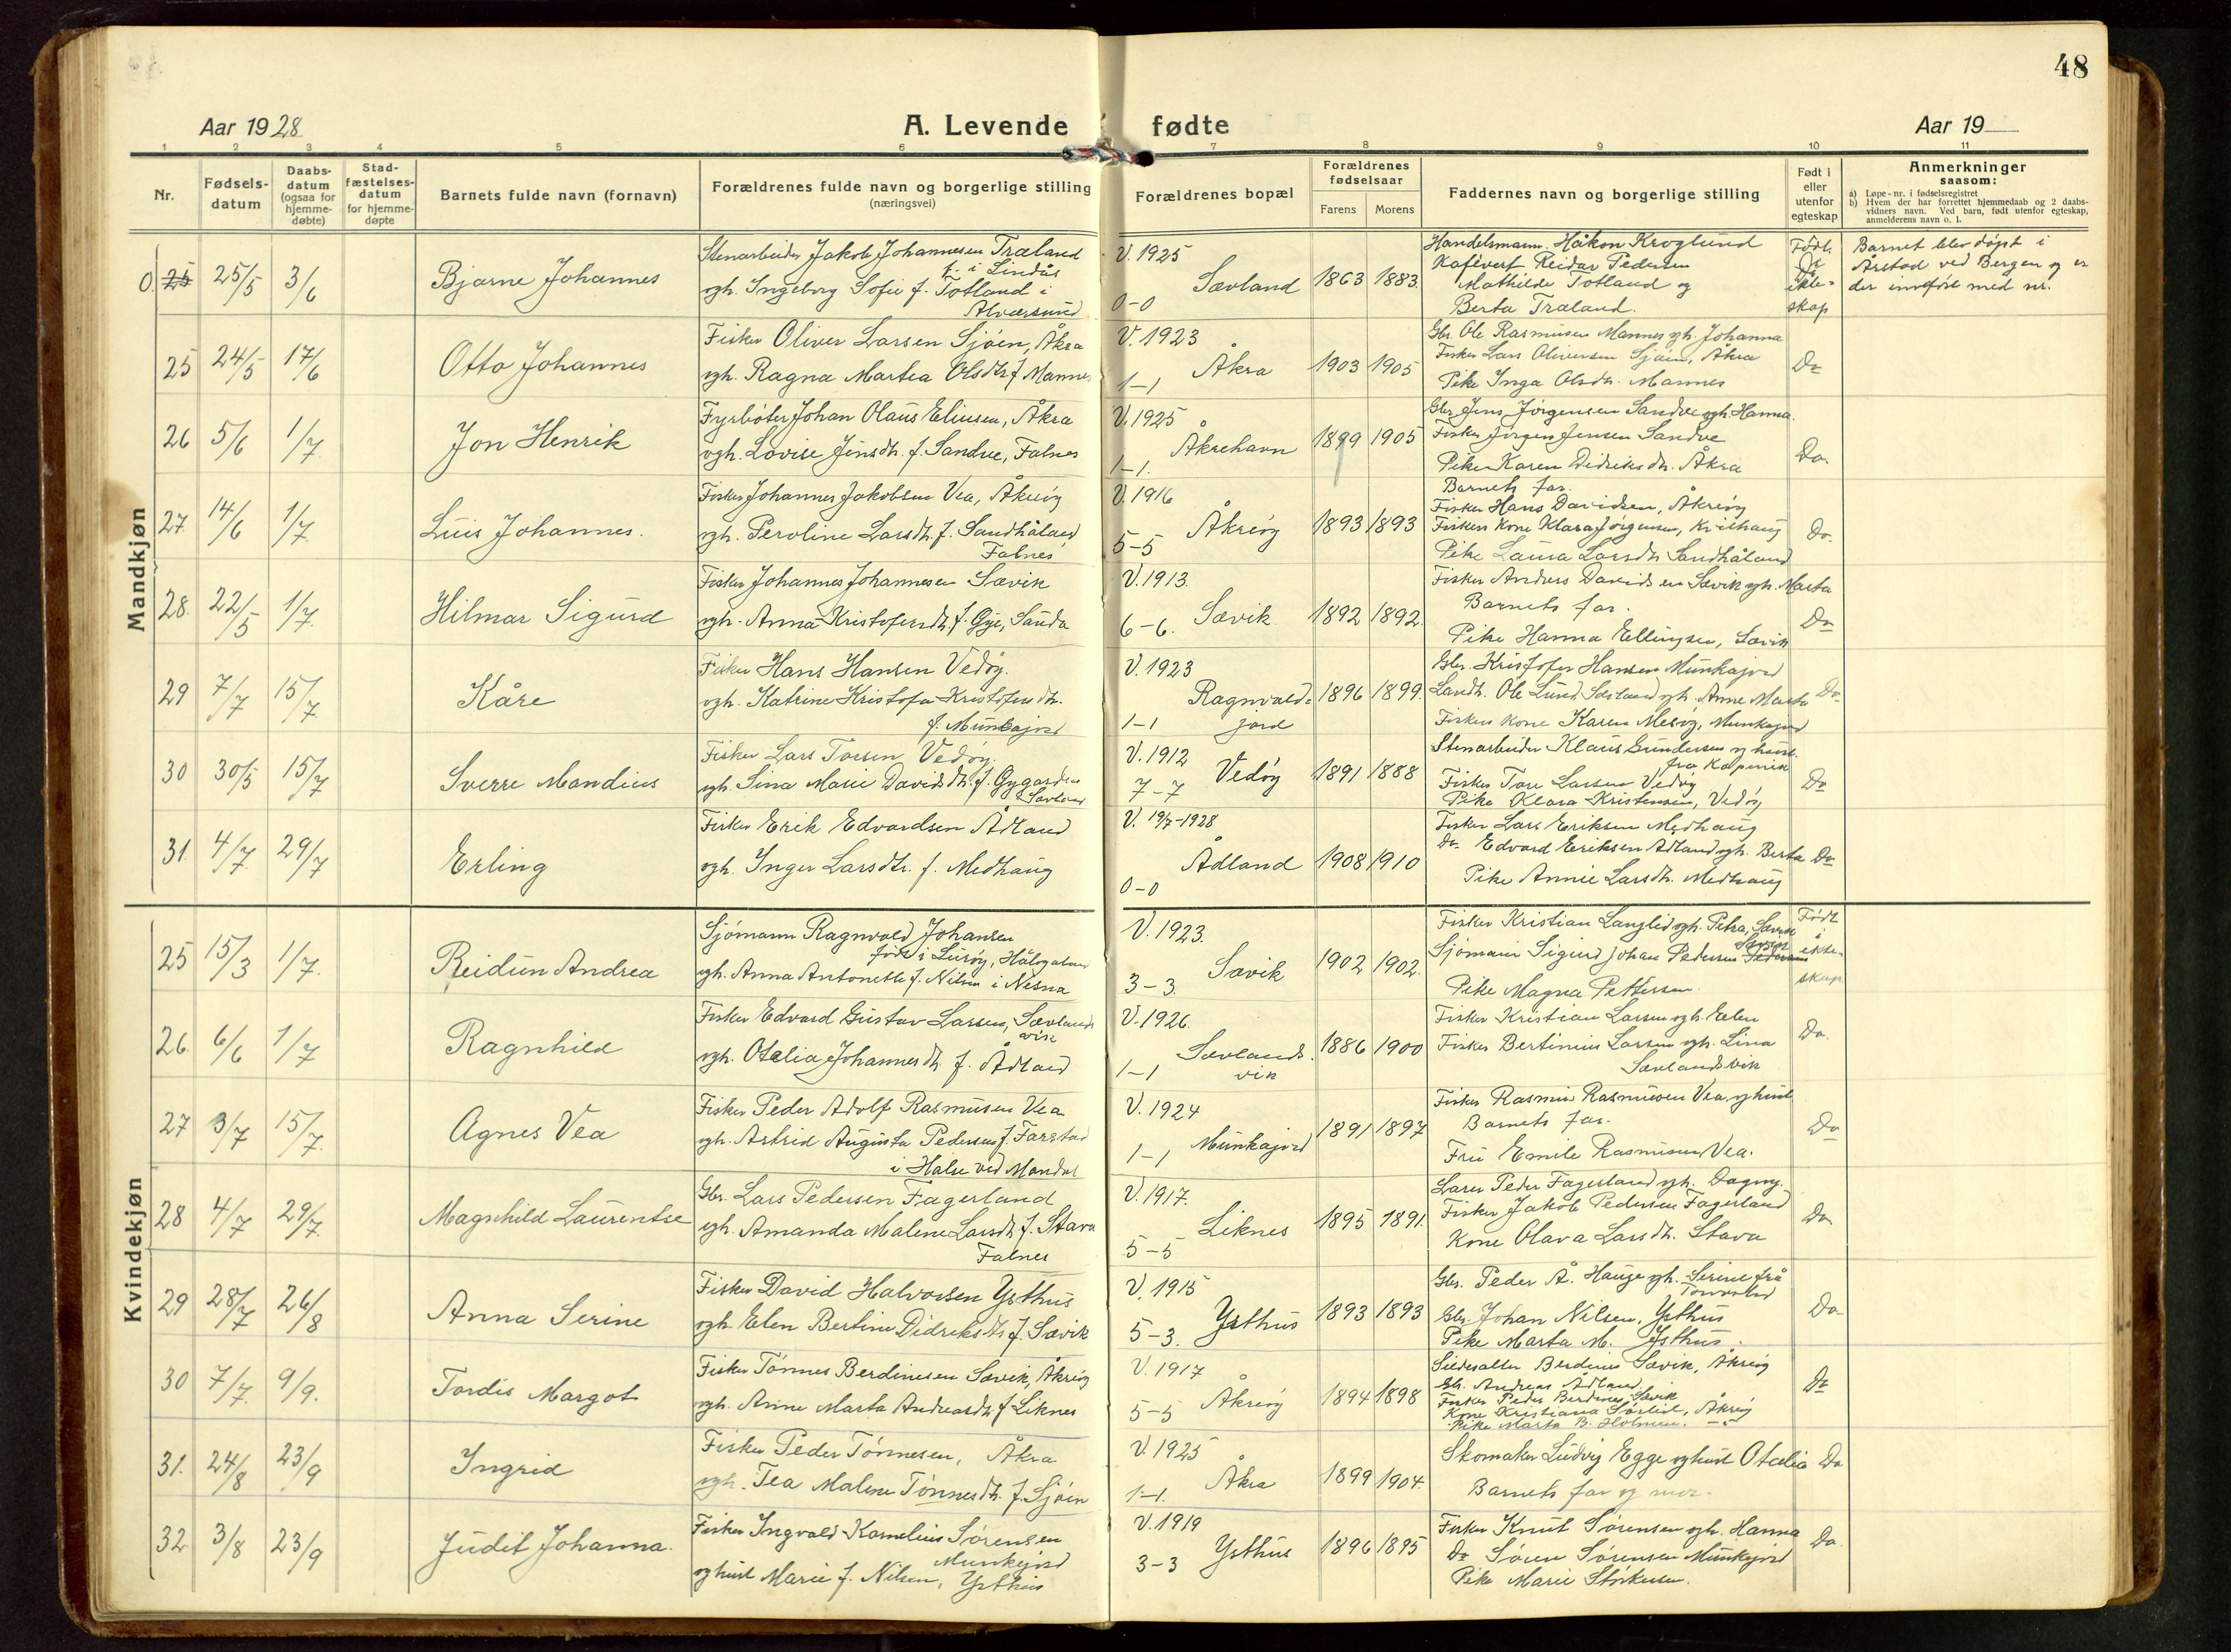 48
Aar 1928
A. Levende fødte
Aar 19
1 2 3 4 5 6 7 8 9 10 11
Nr.
Fødsels-
datum
Daabs-
datum
(ogsaa for
hjemme-
døbte)
Stad-
fæstelses-
datum
for hjemme-
døpte
Barnets fulde navn (fornavn)
Forældrenes fulde navn og borgerlige stilling
(næringsvei)
Forældrenes bopæl
Forældrenes
fødselsaar
Farens Morens
Faddernes navn og borgerlige stilling
Født i
eller
utenfor
egteskap
Anmerkninger
saasom:
a) Løpe-nr. i fødselsregistret
b) Hvem der har forrettet hjemmedaab og 2 daabs-
vidners navn. Ved barn, født utenfor egteskap,
anmelderens navn o. l.
Mandkjøn
0. 25 25/5 3/6 Bjarne Johannes
Stenarbeider Jakob Johannesen Træland
f. i Lindås
ogh. Ingeborg Sofie f. Totland i
Alversund
V. 1925
0-0 Sævland 1863 1883.
Handelsmann Håkon Kroglund
Kafévert Reidar Pedersen
Mathilde Totland og
Berta Træland.
Født
i
ekte-
skap
Barnet blev døpt i
Årstad ved Bergen og er
der innført med nr.
25 24/5 17/6 Otto Johannes
Fisker Oliver Larsen Sjøen, Åkra
ogh. Ragna Martea Olsdtr f. Mannes
V. 1923
1-1 Åkra 1903 1905
Gbr. Ole Rasmusen Mannes ogh. Johanna
Fisker Lars Oliversen Sjøen, Åkra
Pike Inga Olsdtr. Mannes
Do
26 5/6 1/7. Jon Henrik
Fyrbøter Johan Olaus Eliusen, Åkra
ogh. Lovise Jensdtr. f. Sandve, Falnes
V. 1925
1-1. Åkrehavn 1899 1905
Gbr. Jens Jørgensen Sandve ogh. Hanna.
Fisker Jørgen Jensen Sandve
Pike Karen Didriksdtr. Åkra
Barnets far.
Do.
27. 14/6 1/7. Luis Johannes.
Fisker Johannes Jakobsen Vea, Åkreøy
ogh. Peroline Larsdtr. f. Sandhåland
Falnes
V. 1916
5-5 Åkreøy 1893 1893
Fisker Hans Davidsen, Åkreøy
Fiskers kone Klara Jørgensen, Kvilhaug
Pike Laura Larsdtr. Sandhåland
Do.
28. 22/5 1/7. Hilmar Sigurd
Fisker Johannes Johannesen Sævik
ogh. Anna Kristofersdtr. f. Øye, Sauda
V. 1913.
6-6. Sævik 1892 1892.
Fisker Anders Davidsen Sævik ogh. Marta
Barnets far.
Pike Hanna Ellingsen, Sævik
Do
29 7/7 15/7. Kåre
Fisker Hans Hansen Vedøy.
ogh. Katrine Kristofa Kristofersdtr.
f. Munkajord
V. 1923
1-1 Ragnvald=
jord 1896 1899.
Gbr. Kristofer Hansen Munkajord
Landh. Ole Lund Sævland ogh. Anne Marta
Fiskers kone Karen Medøy, Munkajord
Do.
30 30/5 15/7 Sverre Mandius
Fisker Lars Torsen Vedøy.
ogh. Sina Marie Davidsdtr. f. Gygarden
Sævland
V. 1912
7-7 Vedøy 1891 1888
Stenarbeider Klaus Gundersen og hust.
fra Kopervik
Fisker Tore Larsen Vedøy
Pike Klara Kristensen, Vedøy
Do
31. 4/7. 29/7 Erling
Fisker Erik Edvardsen Ådland
ogh. Inger Larsdtr. f. Medhaug
V. 19/7-1928
0-0 Ådland 1908 1910
Fisker Lars Eriksen Medhaug
Do. Edvard Eriksen Ådland ogh. Berta
Pike Annie Larsdtr. Medhaug
Do
Kvindekjøn
25 15/3 1/7. Reidun Andrea
Sjømann Ragnvald Johansen
født i Lurøy, Hålogaland
ogh. Anna Antonette f. Nilsen i Nesna
V. 1923.
3-3. Sævik 1902 1902.
Fisker Kristian Langlid ogh. Petra, Sævik
Sjømann Sigurd Johan Pedersen Sævik
Pike Magna Pettersen.
Født
i
ekte-
skap
26. 6/6 1/7 Ragnhild
Fisker Edvard Gustav Larsen, Sævlands
vik
ogh. Otelia Johannesdtr. f. Ådland
V. 1926.
1-1 Sævlands.
vik 1886 1900
Fisker Kristian Larsen ogh. Elen
Fisker Bertinius Larsen ogh. Lina
Sævlandsvik
Do.
27 3/7 15/7. Agnes Vea
Fisker Peder Adolf Rasmusen Vea
ogh. Astrid Augusta Pedersen f. Farstad
i Halse ved Mandal
V. 1924
1-1 Munkajord 1891 1897
Fisker Rasmus Rasmusen Vea og hust.
Barnets far.
Fru Emilie Rasmusen Vea.
Do
28 4/7 29/7. Magnhild Laurentse
Gbr. Lars Pedersen Fagerland
ogh. Amanda Malene Larsdtr. f. Stava
Falnes
V. 1917.
5-5 Liknes 1895 1891.
Lærer Peder Fagerland ogh. Dagny.
Fisker Jakob Pedersen Fagerland
Kone Olava Larsdtr. Stava
Do.
29 28/7 26/8 Anna Serine
Fisker David Halvorsen Ysthus
ogh. Elen Bertine Didriksdtr f. Sævik
V. 1915
5-3. Ysthus 1893 1893
Gbr. Peder Å. Hauge ogh. Serine frå
Torvestad
Gbr. Johan Nilsen, Ysthus
Pike Marta M. Ysthus.
Do
30 7/7. 9/9. Tordis Margot
Fisker Tønnes Berdinesen Sævik, Åkreøy
ogh. Anne Marta Andreasdtr f Liknes
V. 1917
5-5 Åkreøy 1894 1898
Sildesalter Berdines Sævik, Åkreøy
Gbr. Andreas Ådland
Fisker Peder Berdines Sævik
Kone Kristiana Sørlid, Åkreøy
Pike Marta B. Holmen.
Do
31. 24/8 23/9 Ingrid
Fisker Peder Tønnesen, Åkra
ogh. Tea Malene Tønnesdtr. f. Sjøen
V. 1925
1-1. Åkra 1899 1904.
Skomaker Ludvig Egge og hust Otelia
Barnets far og mor.
Do
32. 3/8 23/9 Judit Johanna.
Fisker Ingvald Kornelius Sørensen
Munkejord
og hust Marie f. Nilsen, Ysthus
V. 1919
3-3 Ysthus 1896 1895
Fisker Knut Sørensen ogh. Hanna
Do Søren Sørensen Munkejord
Pike Marie Størkersen.
Do.